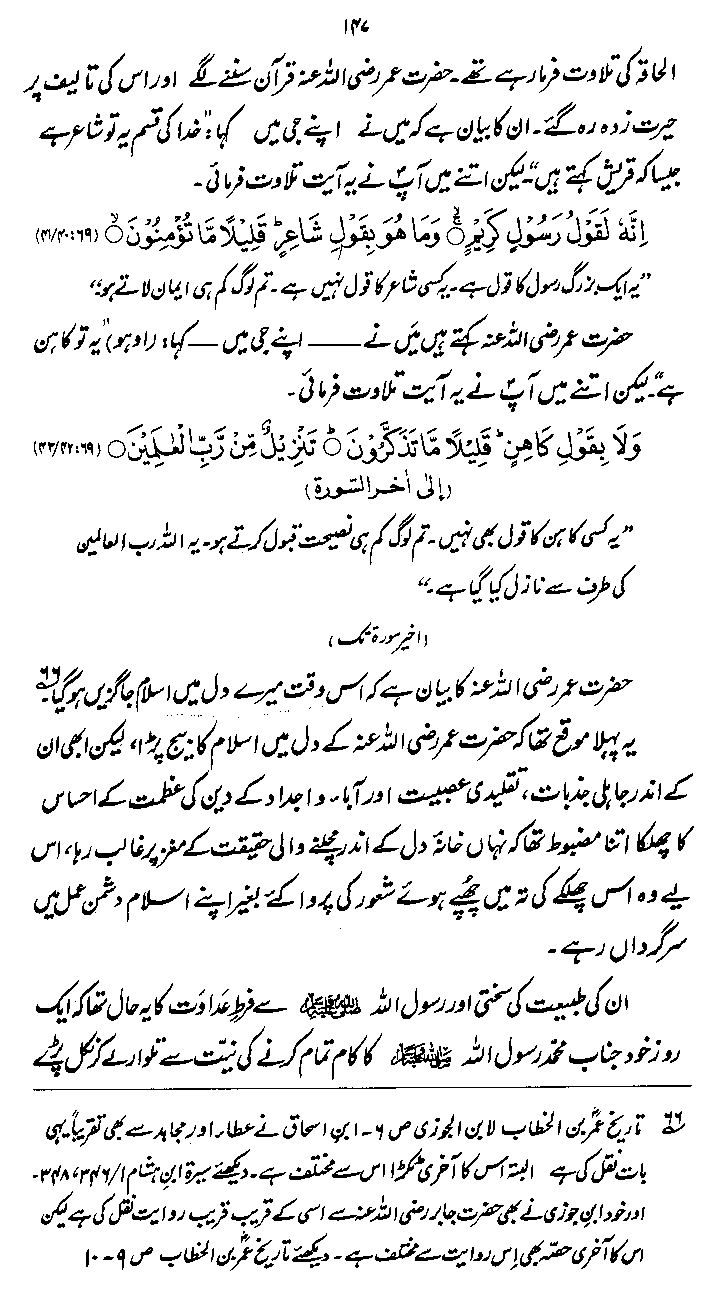 ۱۴۷
الحاقہ کی تلاوت فرما رہے تھے۔ حضرت عمر رضی اللہ عنہ قرآن سننے لگے اور اس کی تالیف پر
حیرت زدہ رہ گئے۔ ان کا بیان ہے کہ میں نے اپنے جی میں کہا: ”خدا کی قسم یہ تو شاعر ہے
جیسا کہ قریش کہتے ہیں“۔ لیکن اتنے میں آپؐ نے یہ آیت تلاوت فرمائی۔
اِنَّهٗ لَقَوْلُ رَسُوْلٍ كَرِيْمٍ ۙ وَّمَا هُوَ بِقَوْلِ شَاعِرٍ ؕ قَلِيْلًا مَّا تُؤْمِنُوْنَ ۙ (۶۹: ۴۰/۴۱)
”یہ ایک بزرگ رسول کا قول ہے۔ یہ کسی شاعر کا قول نہیں ہے۔ تم لوگ کم ہی ایمان لاتے ہو؛“
حضرت عمر رضی اللہ عنہ کہتے ہیں میں نے —— اپنے جی میں — کہا: (او ہو) ”یہ تو کاہن
ہے“۔ لیکن اتنے میں آپؐ نے یہ آیت تلاوت فرمائی۔
وَلَا بِقَوْلِ كَاهِنٍ ؕ قَلِيْلًا مَّا تَذَكَّرُوْنَ ؕ تَنْزِيْلٌ مِّنْ رَّبِّ الْعٰلَمِيْنَ ○ (۶۹: ۴۲/۴۳)
(إلیٰ اٰخر السّورة)
”یہ کسی کاہن کا قول بھی نہیں۔ تم لوگ کم ہی نصیحت قبول کرتے ہو۔ یہ اللہ رب العالمین
کی طرف سے نازل کیا گیا ہے۔“
(اخیر سورۃ تک)
حضرت عمر رضی اللہ عنہ کا بیان ہے کہ اس وقت میرے دل میں اسلام جاگزیں ہو گیا۔ ۶۶
یہ پہلا موقع تھا کہ حضرت عمر رضی اللہ عنہ کے دل میں اسلام کا بیج پڑا، لیکن ابھی ان
کے اندر جاہلی جذبات، تقلیدی عصبیت اور آباء و اجداد کے دین کی عظمت کے احساس
کا چھلکا اتنا مضبوط تھا کہ نہاں خانۂ دل کے اندر مچلنے والی حقیقت کے مغز پر غالب رہا، اس
لیے وہ اس چھلکے کی تہ میں چھپے ہوئے شعور کی پروا کئے بغیر اپنے اسلام دشمن عمل میں
سرگرداں رہے۔
ان کی طبیعت کی سختی اور رسول اللہ ﷺ سے فرطِ عداوت کا یہ حال تھا کہ ایک
روز خود جناب محمد رسول اللہ ﷺ کا کام تمام کرنے کی نیت سے تلوار لے کر نکل پڑے
۶۶ تاریخ عمرؓ بن الخطاب لابن الجوزی ص ۶۔ ابن اسحاق نے عطاء اور مجاہد سے بھی تقریباً یہی
بات نقل کی ہے البتہ اس کا آخری ٹکڑا اس سے مختلف ہے۔ دیکھئے سیرۃ ابن ہشام ۱/۳۴۶، ۳۴۸۔
اور خود ابن جوزی نے بھی حضرت جابر رضی اللہ عنہ سے اسی کے قریب قریب روایت نقل کی ہے لیکن
اس کا آخری حصّہ بھی اِس روایت سے مختلف ہے۔ دیکھئے تاریخ عمرؓ بن الخطاب ص ۹-۱۰